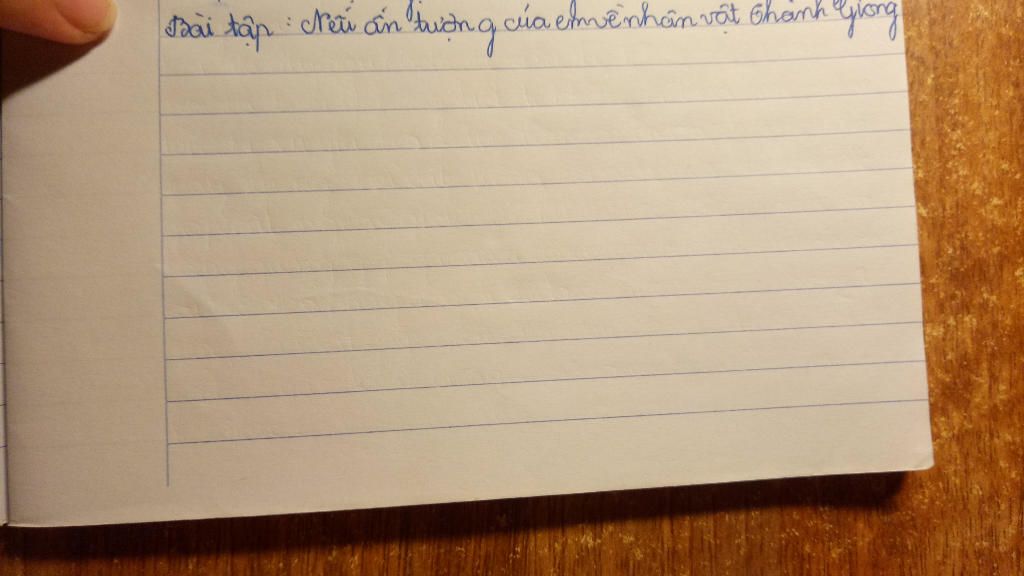 Bài tập : Nêu ấn tượng của em về nhân vật Thánh Gióng